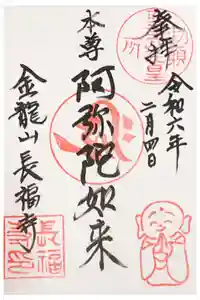 奉拝
令和六年
二月四日
本尊
阿弥陀如来
金龍山長福寺
長福